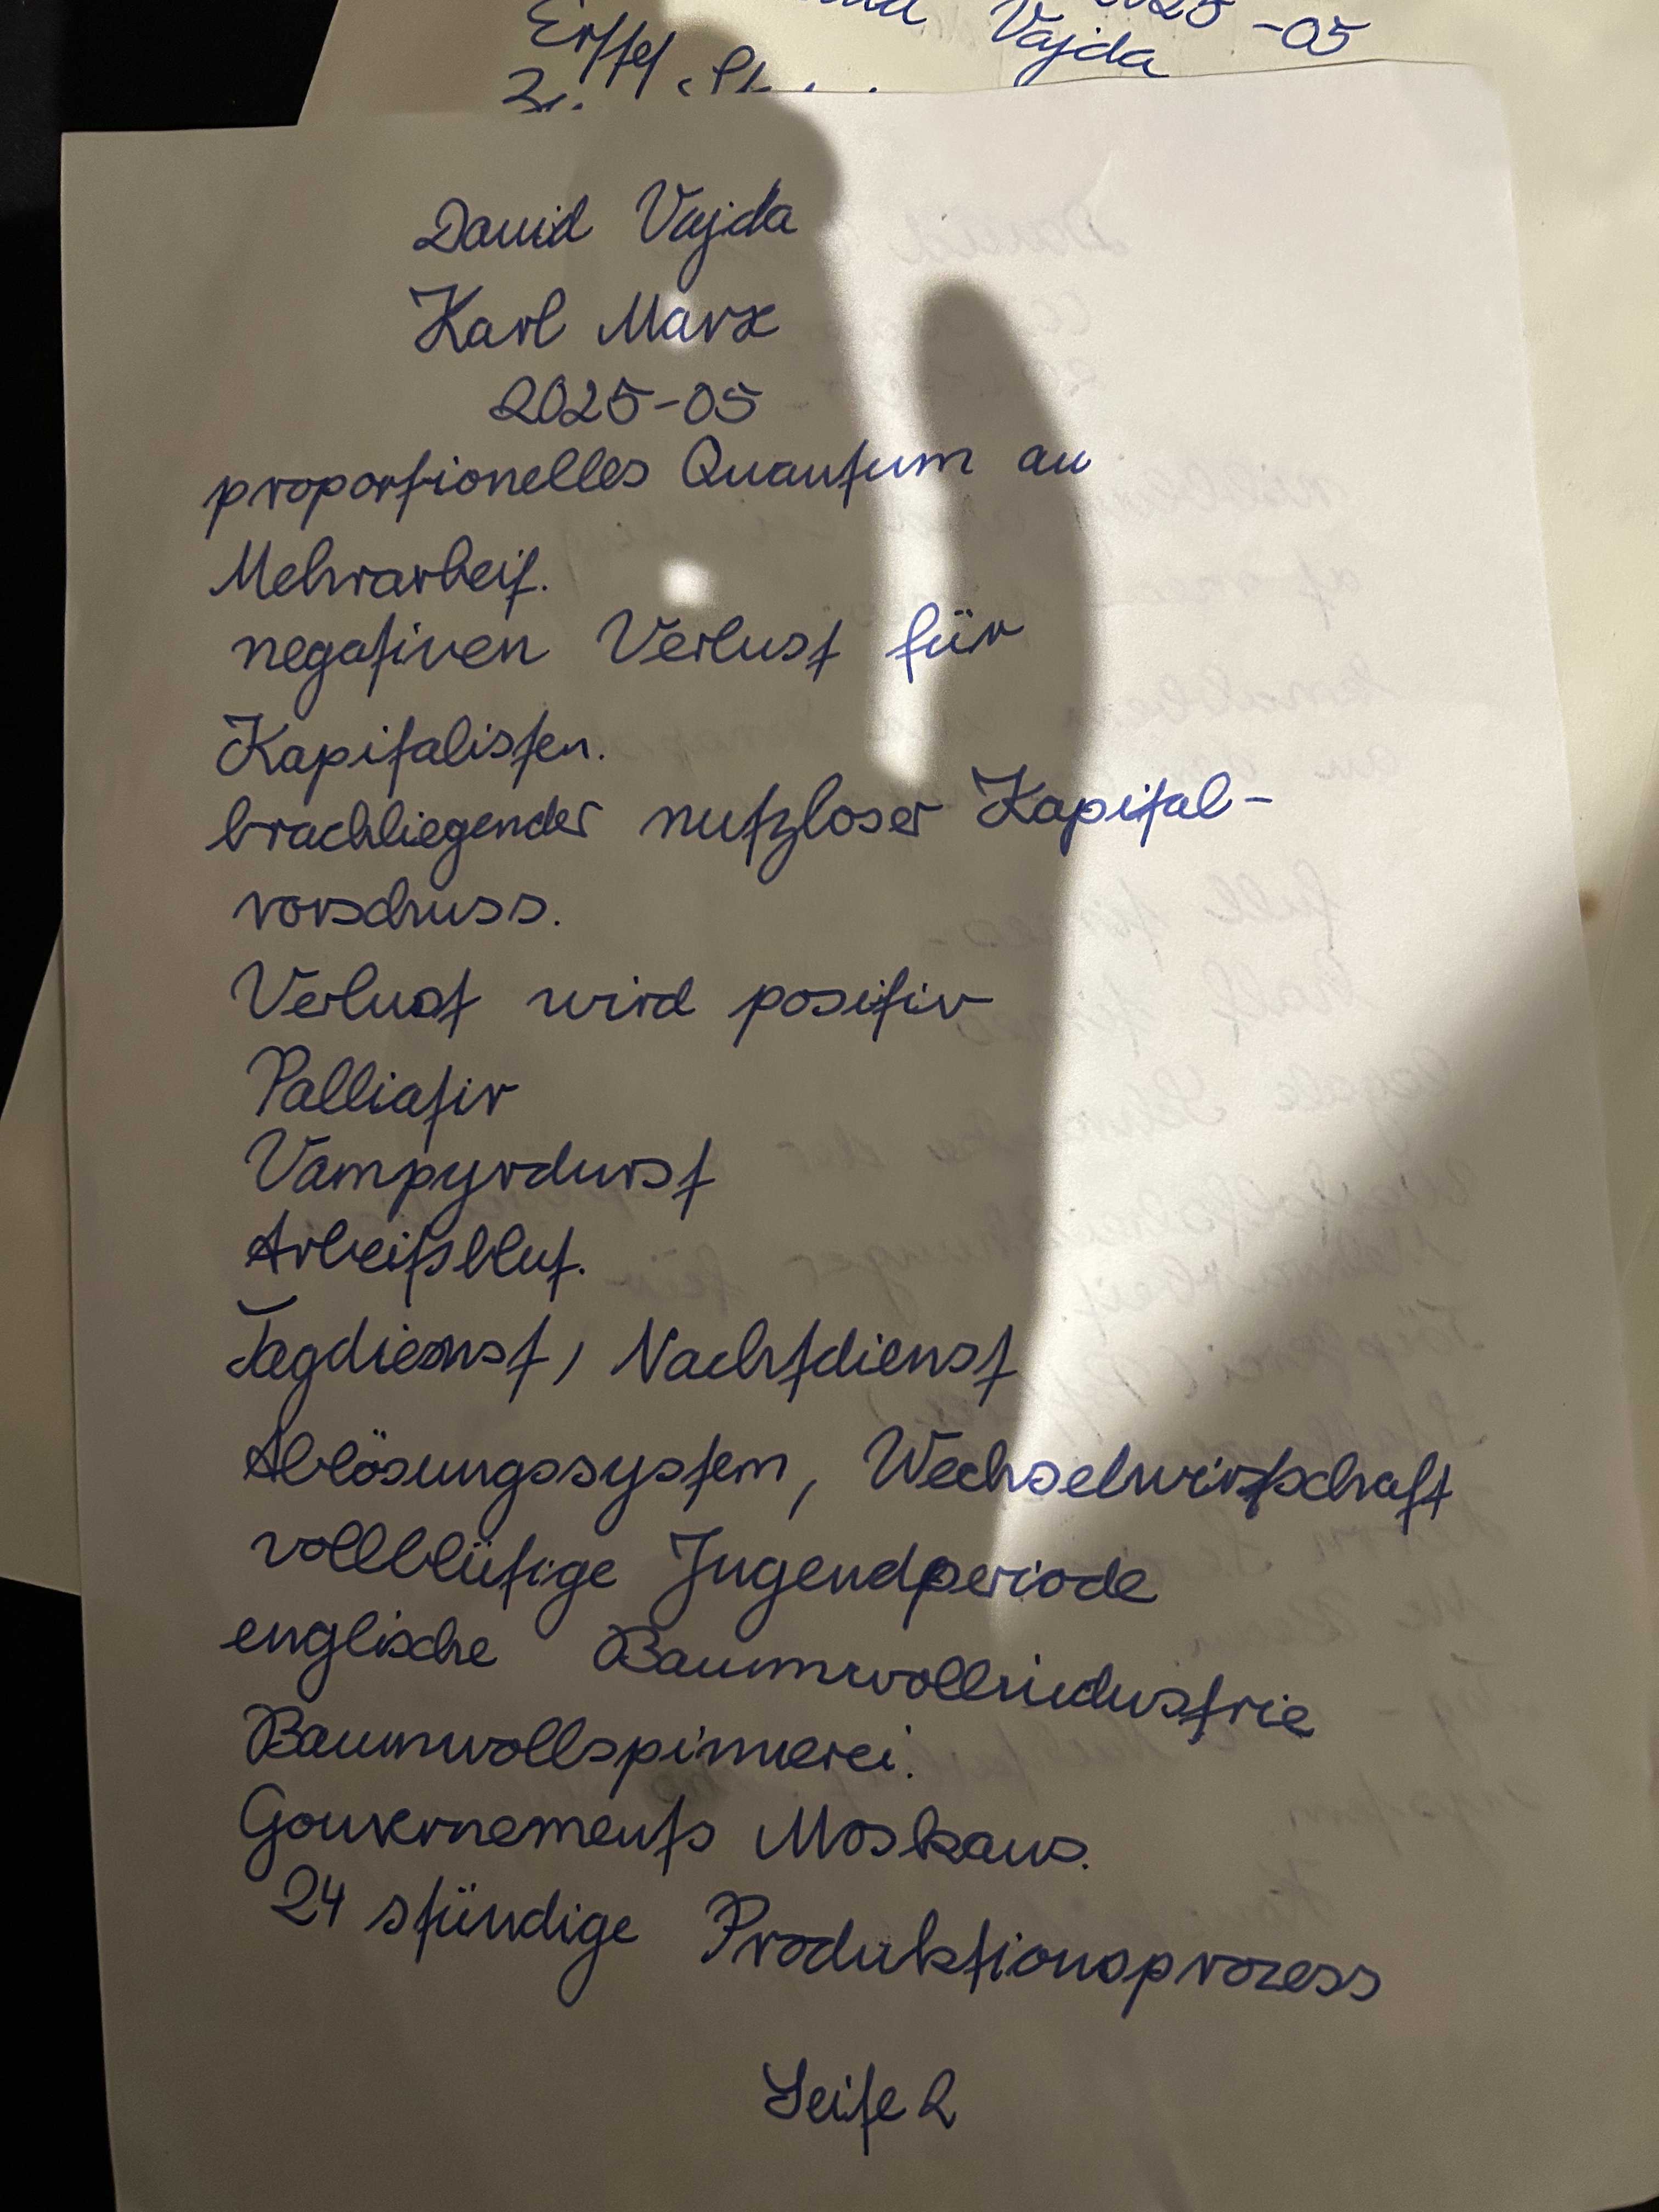 -05
Vajda
David Vajda
Karl Marx
2025-05
proportionelles Quantum an
Mehrarbeit.
negativen Verlust für
Kapitalisten.
brachliegender nutzloser Kapital-
vorschuss.
Verlust wird positiv
Palliativ
Vampyrdurst
Arbeitsblut.
Tagdienst, Nachtdienst
Ablösungssystem, Wechselwirtschaft
vollblütige Jugendperiode
englische Baumwollindustrie
Baumwollspinnerei.
Gouvernements Moskaus.
24 stündige Produktionsprozess
Seite 2